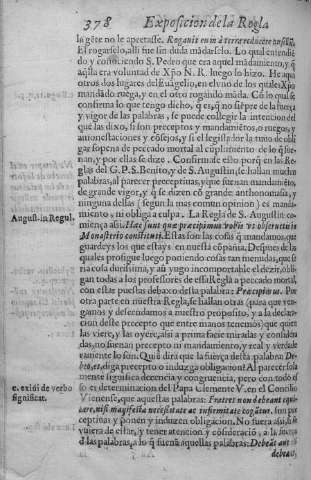 378 Exposicion de la Regla
la gẽte no le apretasse. Rogauit eum à terra reducere pusillũ.
El rogarselo, alli fue sin duda mãdarselo. Lo qual entendiẽ
do y conociendo S. Pedro que era aquel mãdamiento, y q̃
aq̃lla era voluntad de Xp̃o N. R. luego lo hizo. He aqui
otros dos lugares del Euãgelio, en el vno de los quales Xp̃o
mandãdo ruega, y en el otro rogando mãda. Cõ lo qual se
confirma lo que tengo dicho, q̃ es, q̃ no siẽpre de la fuerça
y vigor de las palabras, se puede collegir la intencion del
que las dixo, si son preceptos y mandamiẽtos, o ruegos, y
amonestaciones y cõsejos, y si el legislador la tuuo de obli-
gar sopena de peccado mortal al cũplimiento de lo q̃ sue-
nan, y por ellas se dize. Confirmase esto porq̃ en las Re-
glas del G. P. S. Benito, y de S. Augustin, se hallan muchas
palabras, al parecer preceptiuas, y que suenan mandamiẽto,
de grande vigor, y q̃ se dizen cõ grande anthonomasia, y
ninguna dellas (segun la mas comun opinion) es manda-
miento, ni obliga a culpa. La Regla de S. Augustin co-
August. in Regul.
miença assi: Hæc sunt quæ præcipimus vobis vt obseruetis in
Monasterio constituti. Estas són las cosas q̃ mandamos, que
guardeys los que estays en nuestra cõpañia. Despues de la
quales prosigue luego poniendo cosas tan menudas, que se
ria cosa durissima, y aũ yugo incomportable el dezir, obli-
gan todas a los professores de essa Regla a peccado mortal,
con estar puestas debaxo desta palabra: Præcepimus. Por
otra parte en nuestra Regla, se hallan otras (para que ven-
gamos y defcendamos a nuestro proposito, y a la declara-
cion deste precepto que entre manos tenemos) que quien
las viere, y las oyere, assi a prima facie miradas y conside-
das, no suenan precepto ni mandamiento, y real y verdade
ramente lo son. Quiẽ dira que la fuerça desta palabra: De-
bet, es, diga precepto o induzga obligacion? Al parecer sola-
mente significa decencia y congruencia, pero con todo esso
e. exiui de verbo significat.
so es determinacion del Papa Clemente V. en el Concilio
Vienense, que aquestas palabras: Fratres non debeant equi-
tare, nisi manifesta necessitate ac infirmitate cogãtur. son pre
ceptiuas y ponen y induzen obligacion. No fuera assi, si
vuiera de estar, y tener atencion y cõsideraciõ a la fuerça
d̃ las palabras, a lo q̃ suenã aquestas palabras: Debeãt aut
debeas,